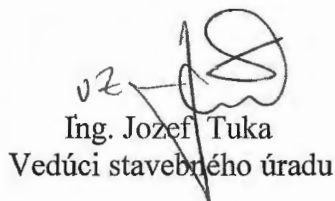 vz
Ing. Jozef Tuka
Vedúci stavebného úradu